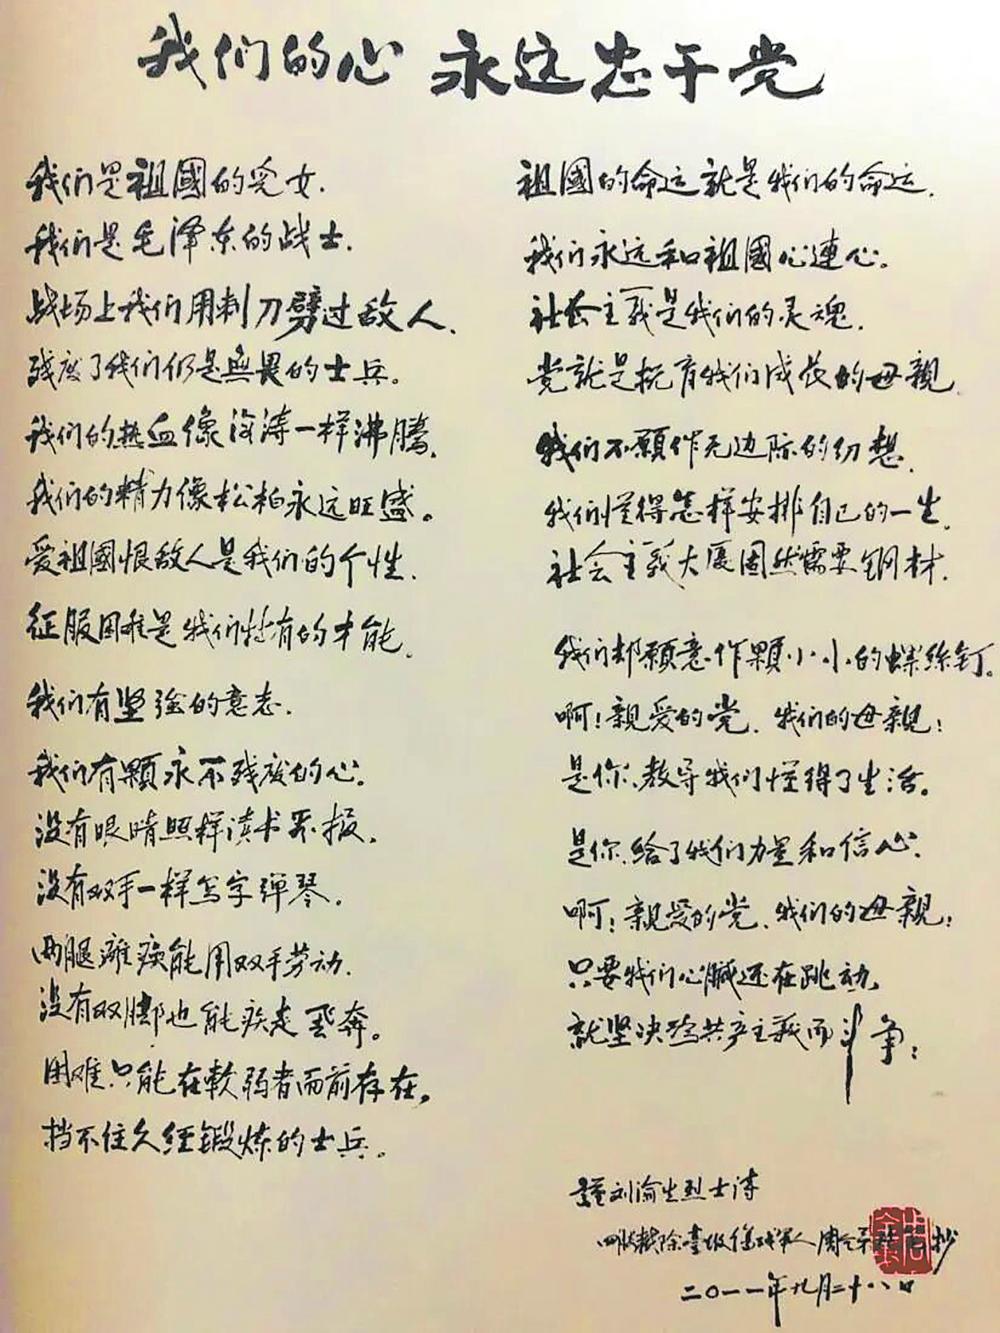 我们的心 永远忠于党
我们是祖國的児女.
我们是毛泽东的战士.
战场上我们用刺刀劈过敌人.
残废了我们仍是無畏的士兵。
我们的热血像波涛一样沸腾.
我们的精力像松柏永远旺盛。
爱祖國恨敌人是我们的个性.
征服困难是我们特有的才能.
我们有坚強的意志.
我们有顆永不残废的心。
没有眼晴照样读书写报.
没有双手一样写字弹琴。
两腿瘫痪能用双手劳动.
没有双脚也能疾走飛奔。
困难只能在軟弱者面前存在,
挡不住久经锻炼的士兵。
祖國的命运就是我们的命运.
我们永远和祖國心連心。
社会主義是我们的灵魂.
党就是抚育我们成长的母親.
我们不願作无边际的幻想.
我们懂得怎样安排自己的一生.
社会主義大廈固然需要钢材.
我们却願意作顆小小的螺丝钉。
啊!親爱的党.我们的母親!
是你.教导我们懂得了生活。
是你.给了我们力量和信心.
啊!親爱的党.我们的母親!
只要我们心臟还在跳动,
就坚决为共产主義而斗争!
謹刘渝生烈士诗
四肢截除壹级傷残軍人 抄
二〇一一年九月二十八日